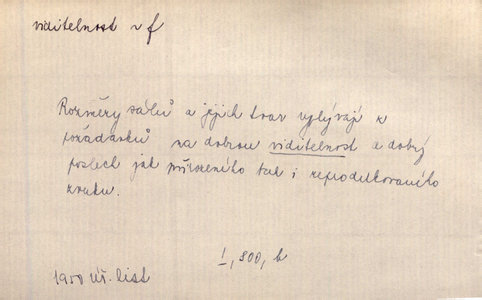 viditelnost v f
Rozměry sálů a jejich tvar vyplývají z
požadavků na dobrou viditelnost a dobrý
poslech jak přirozeného tak i reprodukovaného
zvuku.
I, 800, b
1950 Úř. list